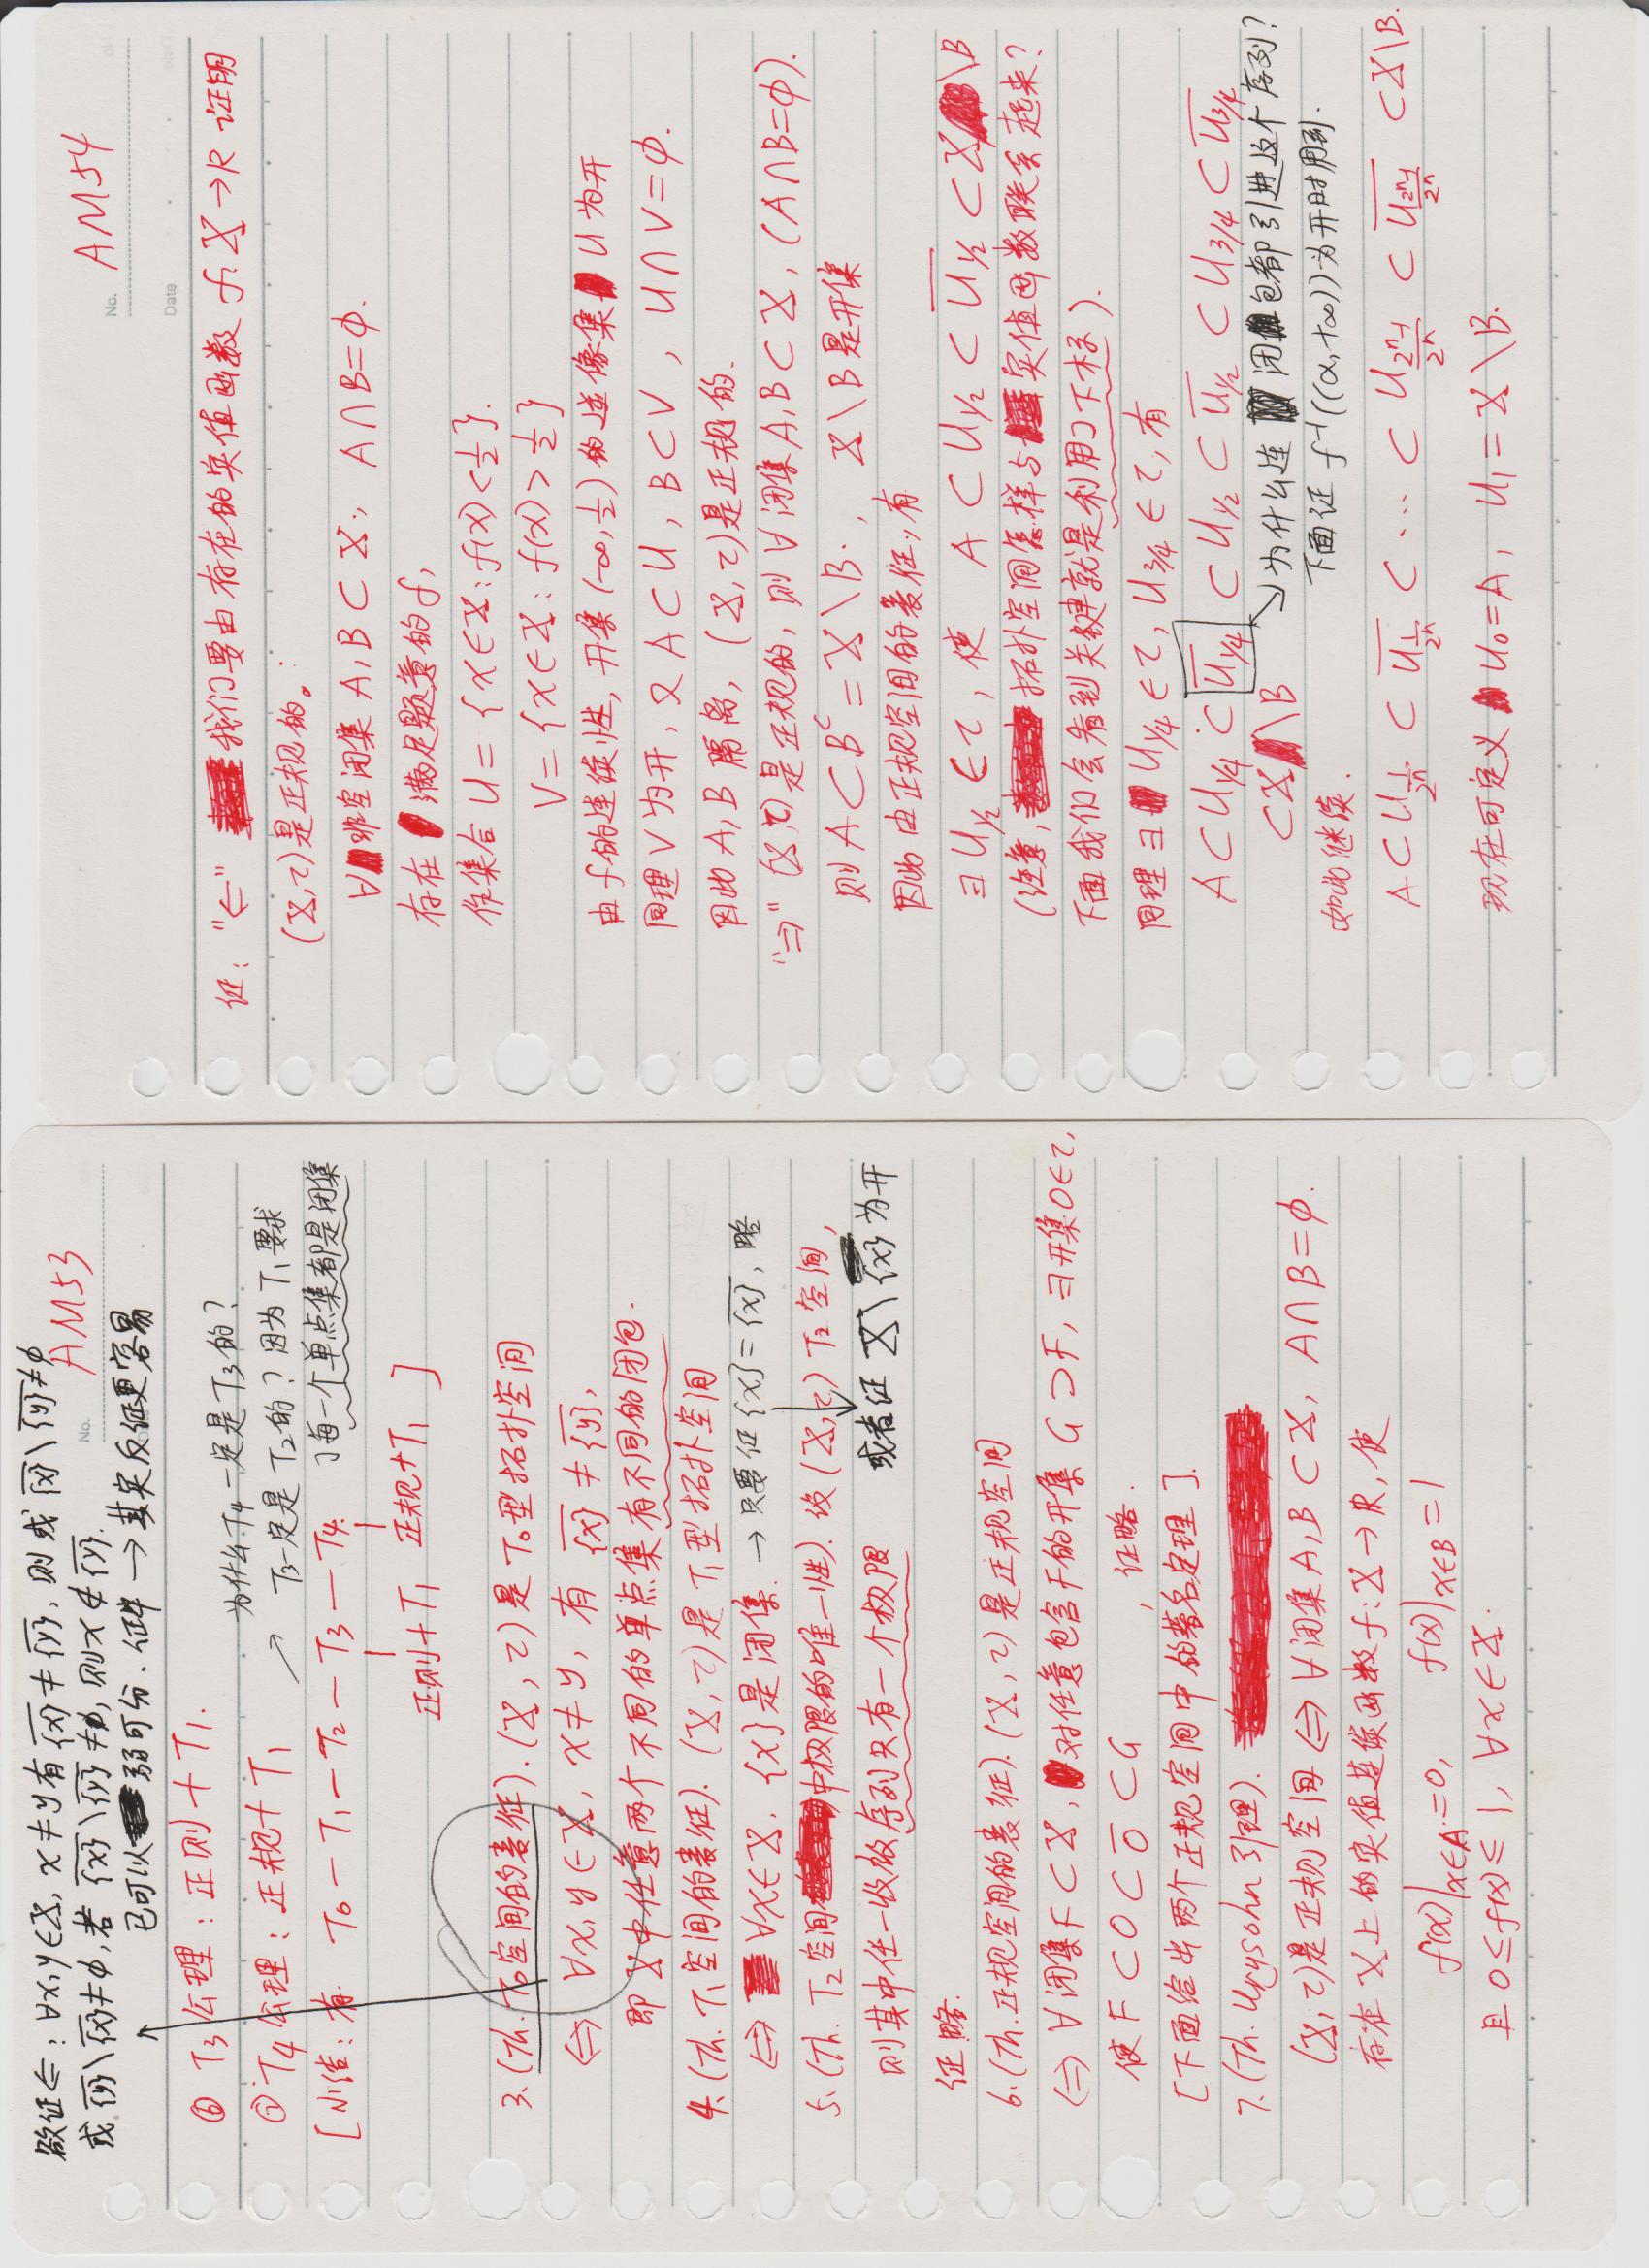 欲证⇐：∀x,y∈X, x≠y有 \overline{{x}}≠\overline{{y}}, 则或 \overline{{x}}\\overline{{y}}≠∅
或 \overline{{y}}\\overline{{x}}≠∅, 若 \overline{{x}}\\overline{{y}}≠∅, 则x∉\overline{{y}}.
已可以弱可分. 证毕 → 其实反证更容易
No. AM53
⑥ T₃公理：正则+T₁.
⑦ T₄公理：正规+T₁
↗ 为什么T₄一定是T₃的？
T₃一定是T₂的？因为T₁要求
了每一个单点集都是闭集
[小结：有 T₀—T₁—T₂—T₃—T₄.
正则+T₁ 正规+T₁ ]
3.(Th. T₀空间的表征). (X, τ)是T₀型拓扑空间
⇔ ∀x,y∈X, x≠y, 有 \overline{{x}}≠\overline{{y}},
即X中任意两个不同的单点集有不同的闭包.
4.(Th. T₁空间的表征). (X, τ)是T₁型拓扑空间
⇔ ∀x∈X, {x}是闭集. → 只要证{x}=\overline{{x}}, 略
5.(Th. T₂空间中极限的唯一性). 设(X,τ) T₂空间,
则其中任一收敛序列只有一个极限
或者证 X\{x}为开
证略.
6.(Th.正规空间的表征). (X, τ)是正规空间
⇔ ∀闭集F⊂X, 对任意包含F的开集G⊃F, ∃开集O∈τ,
使F⊂O⊂\overline{O}⊂G , 证略.
[下面给出两个正规空间中的著名定理].
7.(Th. Urysohn引理).
(X,τ)是正规空间⇔∀闭集A,B⊂X, A∩B=∅.
存在X上的实值连续函数f:X→R, 使
f(x)|x∈A=0, f(x)|x∈B=1
且 0≤f(x)≤1, ∀x∈X.
No. AM54
Date
证："⇐" 我们要由存在的实值函数 f:X→R 证明
(X,τ)是正规的。
∀非空闭集A,B⊂X, A∩B=∅.
存在满足题意的f,
作集合U={x∈X:f(x)<1/2}.
V={x∈X:f(x)>1/2}
由f的连续性, 开集(-∞,1/2)的逆像集U为开
同理V为开, 又A⊂U, B⊂V, U∩V=∅.
因此A,B隔离, (X,τ)是正规的.
"⇒" (X,τ)是正规的, 则∀闭集A,B⊂X, (A∩B=∅).
则A⊂Bᶜ=X\B., X\B是开集
因此由正规空间的表征, 有
∃U_{1/2}∈τ, 使 A⊂U_{1/2}⊂\overline{U_{1/2}}⊂X\B
(注意, 拓扑空间怎样与实值函数联系起来？
下面我们会看到关键就是利用了下标).
同理∃U_{1/4}∈τ, U_{3/4}∈τ, 有
A⊂U_{1/4}⊂\overline{U_{1/4}}⊂U_{1/2}⊂\overline{U_{1/2}}⊂U_{3/4}⊂\overline{U_{3/4}}
⊂X\B
↘为什么连闭包都引进这个序列？
下面证 f⁻¹((α,+∞))为开时用到.
如此继续.
A⊂U_{1/2ⁿ}⊂\overline{U_{1/2ⁿ}}⊂···⊂U_{2ⁿ-1/2ⁿ}⊂\overline{U_{2ⁿ-1/2ⁿ}}⊂X\B.
现在可定义U₀=A, U₁=X\B.